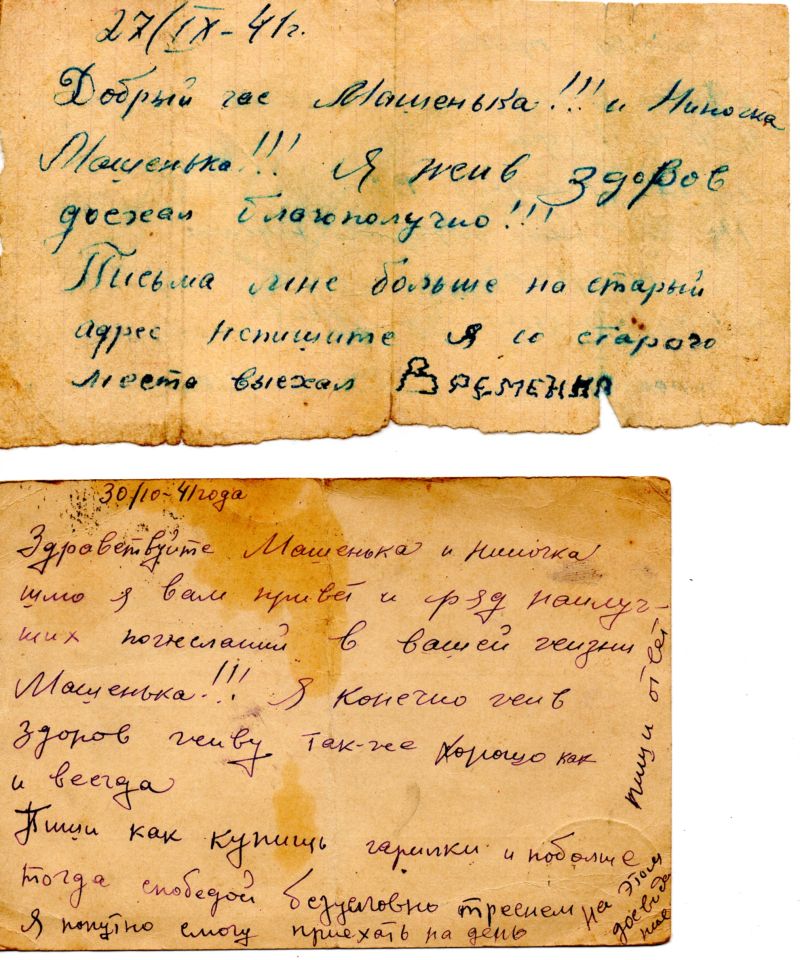 27/IX-41г.
Добрый час Машенька!!! и Ниночка
Машенька!!! Я жив здоров
доехал благополучно!!!
Письма мне больше на старый
адрес непишите я со старого
места выехал Временна
30/10-41года
Здравствуйте Машенька и Ниночка
шлю я вам привет и ряд наилуч-
ших пожеланий в вашей жизни
Машенька!!! Я конечно жив
здоров живу так-же хорошо как
и всегда
Пиши как купишь гарилки и побольше
тогда спобедой безусловно треснем
Я попутно смогу приехать на день
на этом
досвида
ние
пиши ответ